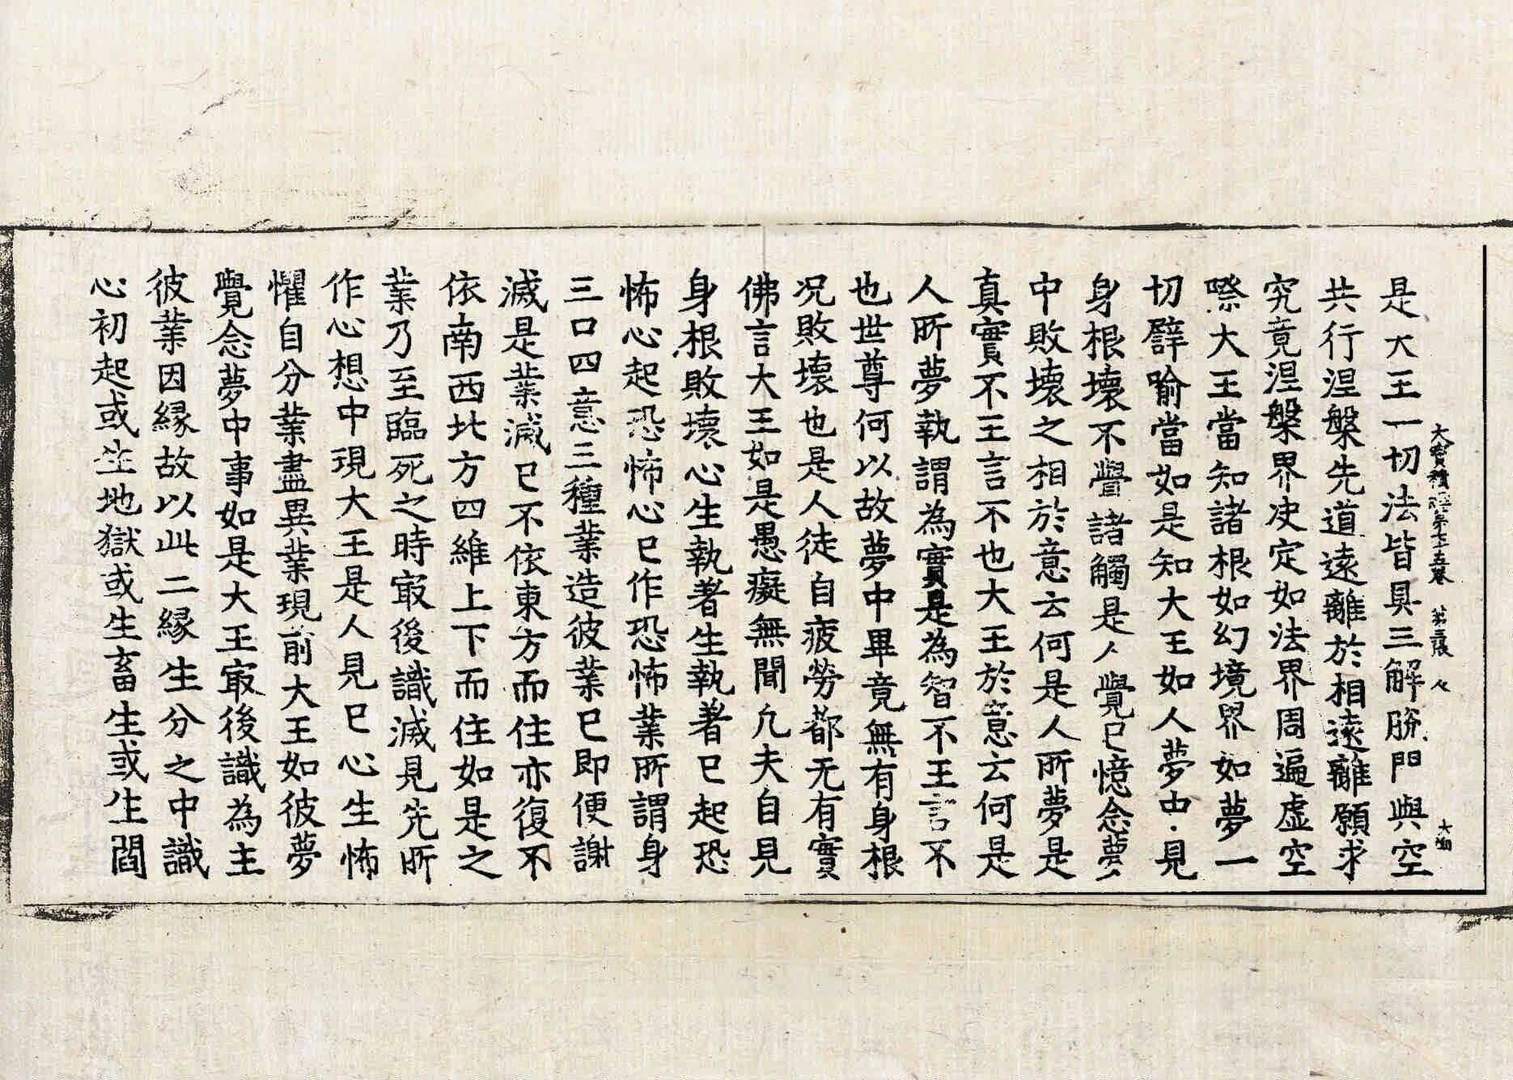 是大王一切法皆具三解脱門與空
大寶積經第七十五卷 第三張 火
大
共行涅槃先道遠離於相遠離願求
究竟涅槃界决定如法界周遍虛空
際大王當知諸根如幻境界如夢一
切譬喻當如是知大王如人夢中見
身根壞不覺諸觸是人覺已憶念夢
中敗壞之相於意云何是人所夢是
真實不王言不也大王於意云何是
人所夢執謂為實是為智不王言不
也世尊何以故夢中畢竟無有身根
况敗壞也是人徒自疲勞都无有實
佛言大王如是愚癡無聞凡夫自見
身根敗壞心生執著生執著已起恐
怖心起恐怖心已作恐怖業所謂身
三口四意三種業造彼業已即便謝
滅是業滅已不依東方而住亦復不
依南西北方四維上下而住如是之
業乃至臨死之時㝡後識滅見先所
作心想中現大王是人見已心生怖
懼自分業盡異業現前大王如彼夢
覺念夢中事如是大王㝡後識為主
彼業因緣故以此二緣生分之中識
心初起或生地獄或生畜生或生閻